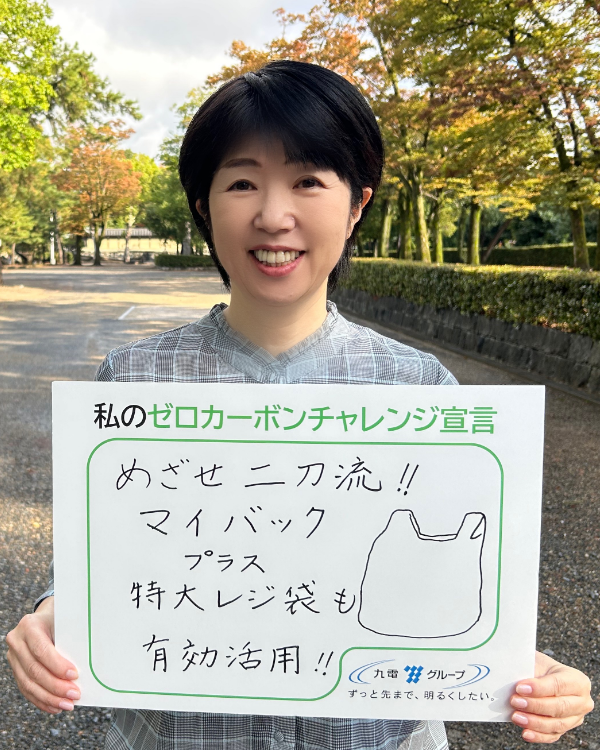 私のゼロカーボンチャレンジ宣言
めざせ 二刀流!!
マイバック
プラス
特大レジ袋も
有効活用!!
九電 グループ
ずっと先まで、明るくしたい。